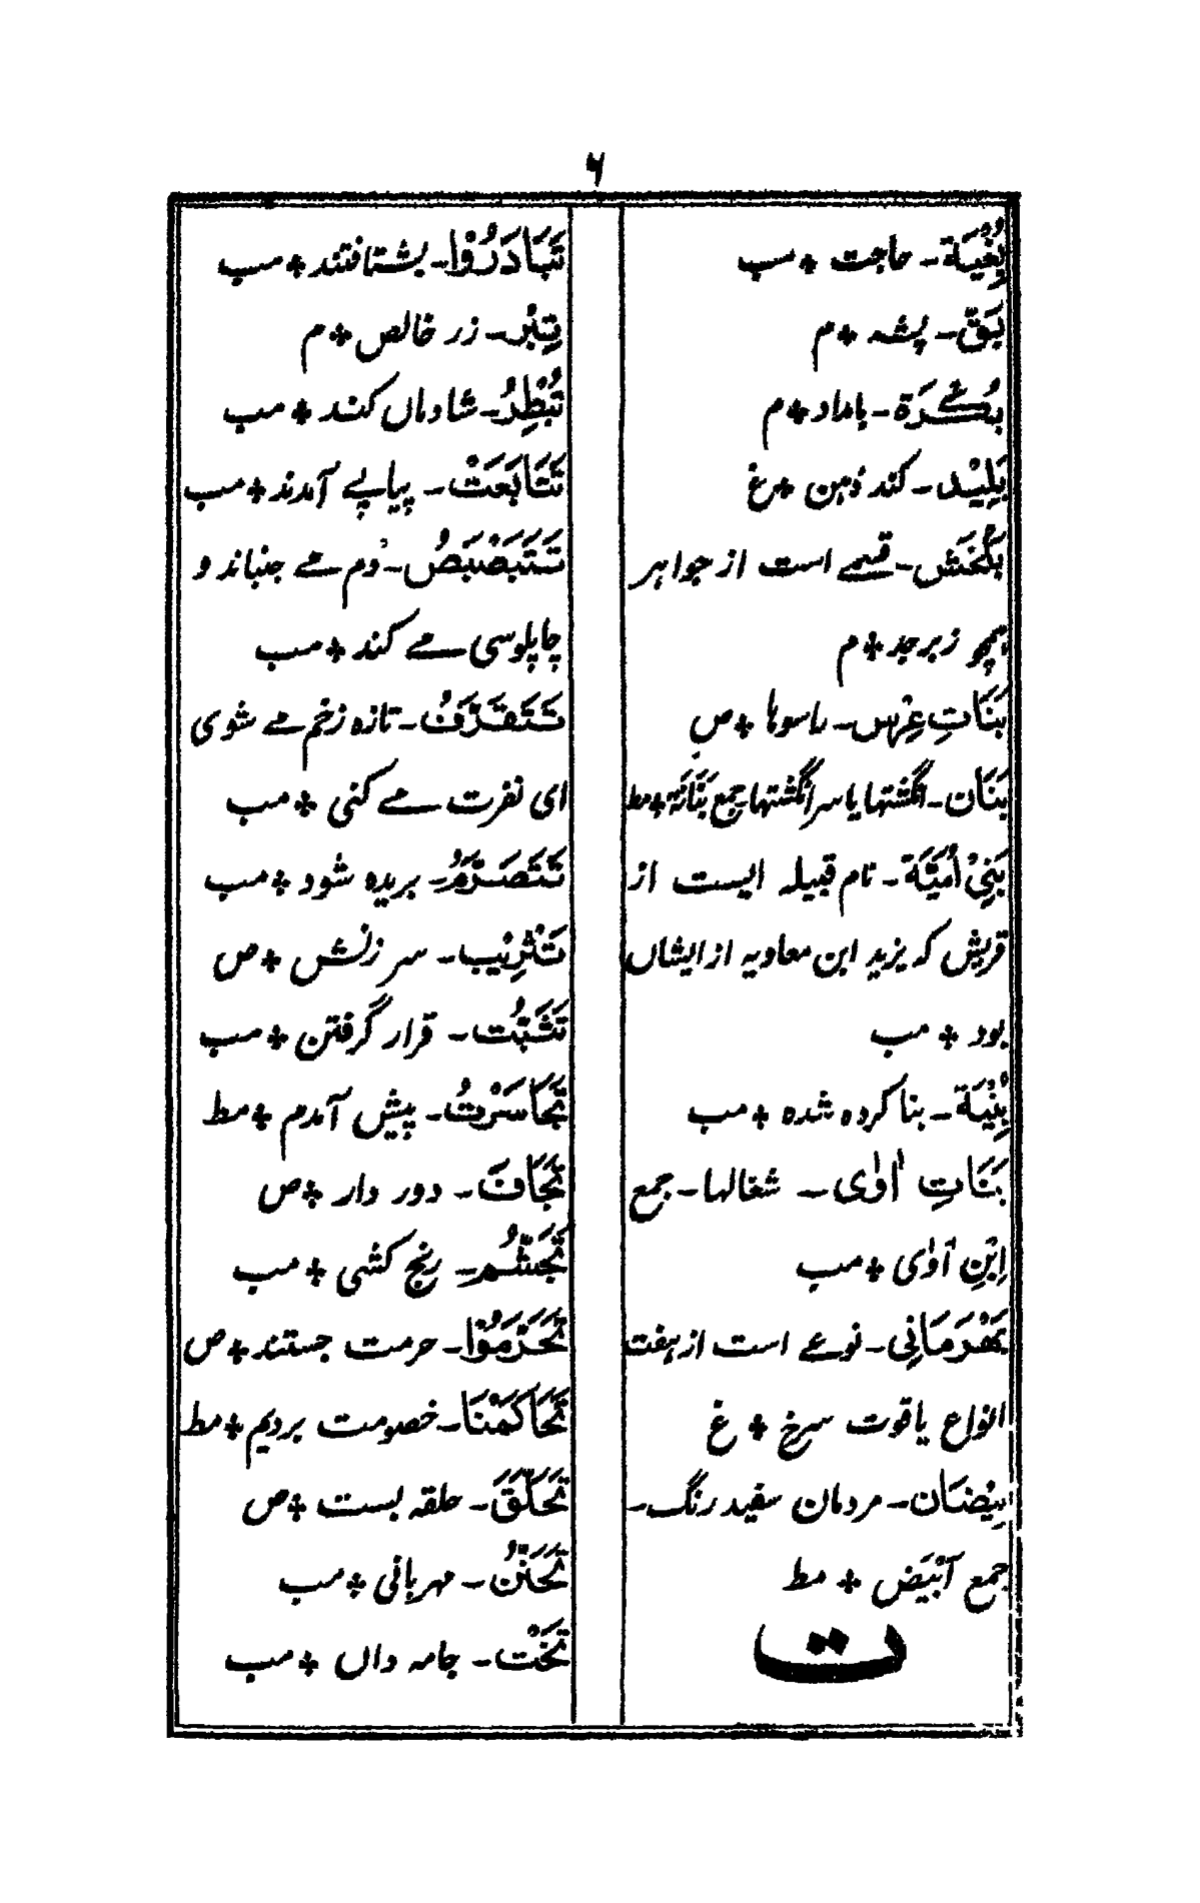 ۶
بُغْيَة ـ حاجت + مب
بَقّ ـ پشہ + م
بُكْرَة ـ بامداد + م
بَلِيْد ـ کند ذہن + غ
بَلْخَش ـ قسمے است از جواہر
ہمچو زبرجد + م
بَنَاتِ عِرْس ـ راسوہا + ص
بَنَان ـ انگشتہا یا سرانگشتہا جمع بَنَانَة + مط
بَنِيْ اُمَيَّة ـ نام قبیلہ ایست از
قریش کہ یزید ابن معاویہ از ایشاں
بود + مب
بُِنْيَة ـ بنا کردہ شدہ + مب
بَنَاتِ اٰوٰى ـ شغالہا ـ جمع
اِبْنِ اٰوٰى + مب
بَهْرَمَانِي ـ نوعے است از ہفت
انواع یاقوت سرخ + غ
بِيْضَان ـ مردمان سفید رنگ ـ
جمع اَبْيَض + مط
ت
تَبَادَرُوْا ـ بشتافتند + مب
تِبْر ـ زر خالص + م
تُبْطِرُ ـ شاداں کند + مب
تَتَابَعَتْ ـ پیاپے آمدند + مب
تَتَبَصْبَصُ ـ دُم مے جنباند و
چاپلوسی مے کند + مب
تَتَقَرَّفُ ـ تازہ زخم مے شوی
ای نفرت مے کنی + مب
تَتَصَرَّمُ ـ بریدہ شود + مب
تَثْرِيْب ـ سرزنش + ص
تَثَبُّت ـ قرار گرفتن + مب
تَجَاسَرْتُ ـ پیش آمدم + مط
تَجَافَ ـ دور دار + ص
تَجَشُّم ـ رنج کشی + مب
تَحَرَّمُوْا ـ حرمت جستند + ص
تَحَاكَمْنَا ـ خصومت بردیم + مط
تَحَلَّقَ ـ حلقہ بست + ص
تَحَنُّنُ ـ مہربانی + مب
تَخْت ـ جامہ داں + مب